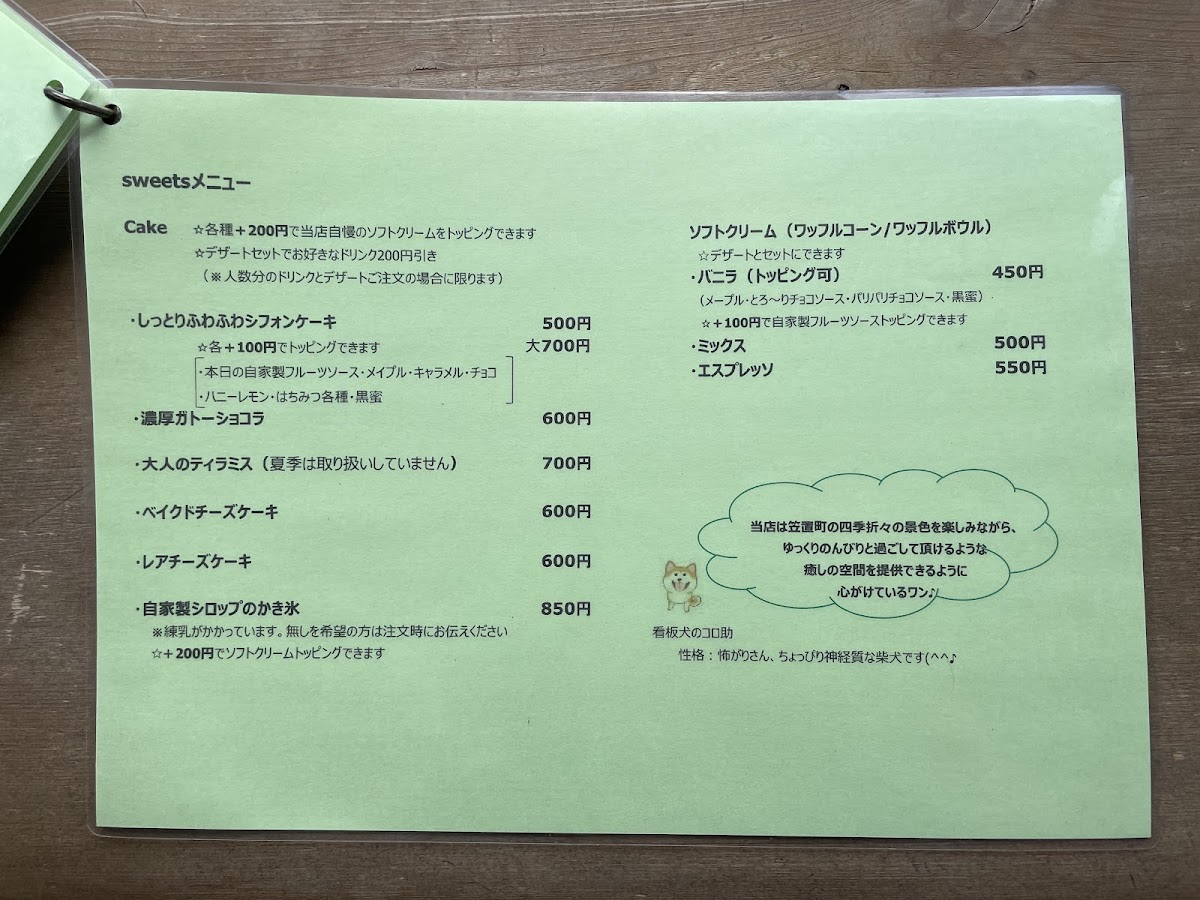 sweetsメニュー
Cake ☆各種+200円で当店自慢のソフトクリームをトッピングできます
☆デザートセットでお好きなドリンク200円引き
（※人数分のドリンクとデザートご注文の場合に限ります）
・しっとりふわふわシフォンケーキ 500円
☆各+100円でトッピングできます 大700円
・本日の自家製フルーツソース・メイプル・キャラメル・チョコ
・ハニーレモン・はちみつ各種・黒蜜
・濃厚ガトーショコラ 600円
・大人のティラミス（夏季は取り扱いしていません） 700円
・ベイクドチーズケーキ 600円
・レアチーズケーキ 600円
・自家製シロップのかき氷 850円
※練乳がかかっています。無しを希望の方は注文時にお伝えください
☆+200円でソフトクリームトッピングできます
ソフトクリーム（ワッフルコーン/ワッフルボウル）
☆デザートとセットにできます
・バニラ（トッピング可） 450円
（メープル・とろ～りチョコソース・パリパリチョコソース・黒蜜）
☆+100円で自家製フルーツソーストッピングできます
・ミックス 500円
・エスプレッソ 550円
当店は笠置町の四季折々の景色を楽しみながら、
ゆっくりのんびりと過ごして頂けるような
癒しの空間を提供できるように
心がけているワン♪
看板犬のコロ助
性格：怖がりさん、ちょっぴり神経質な柴犬です(^^♪